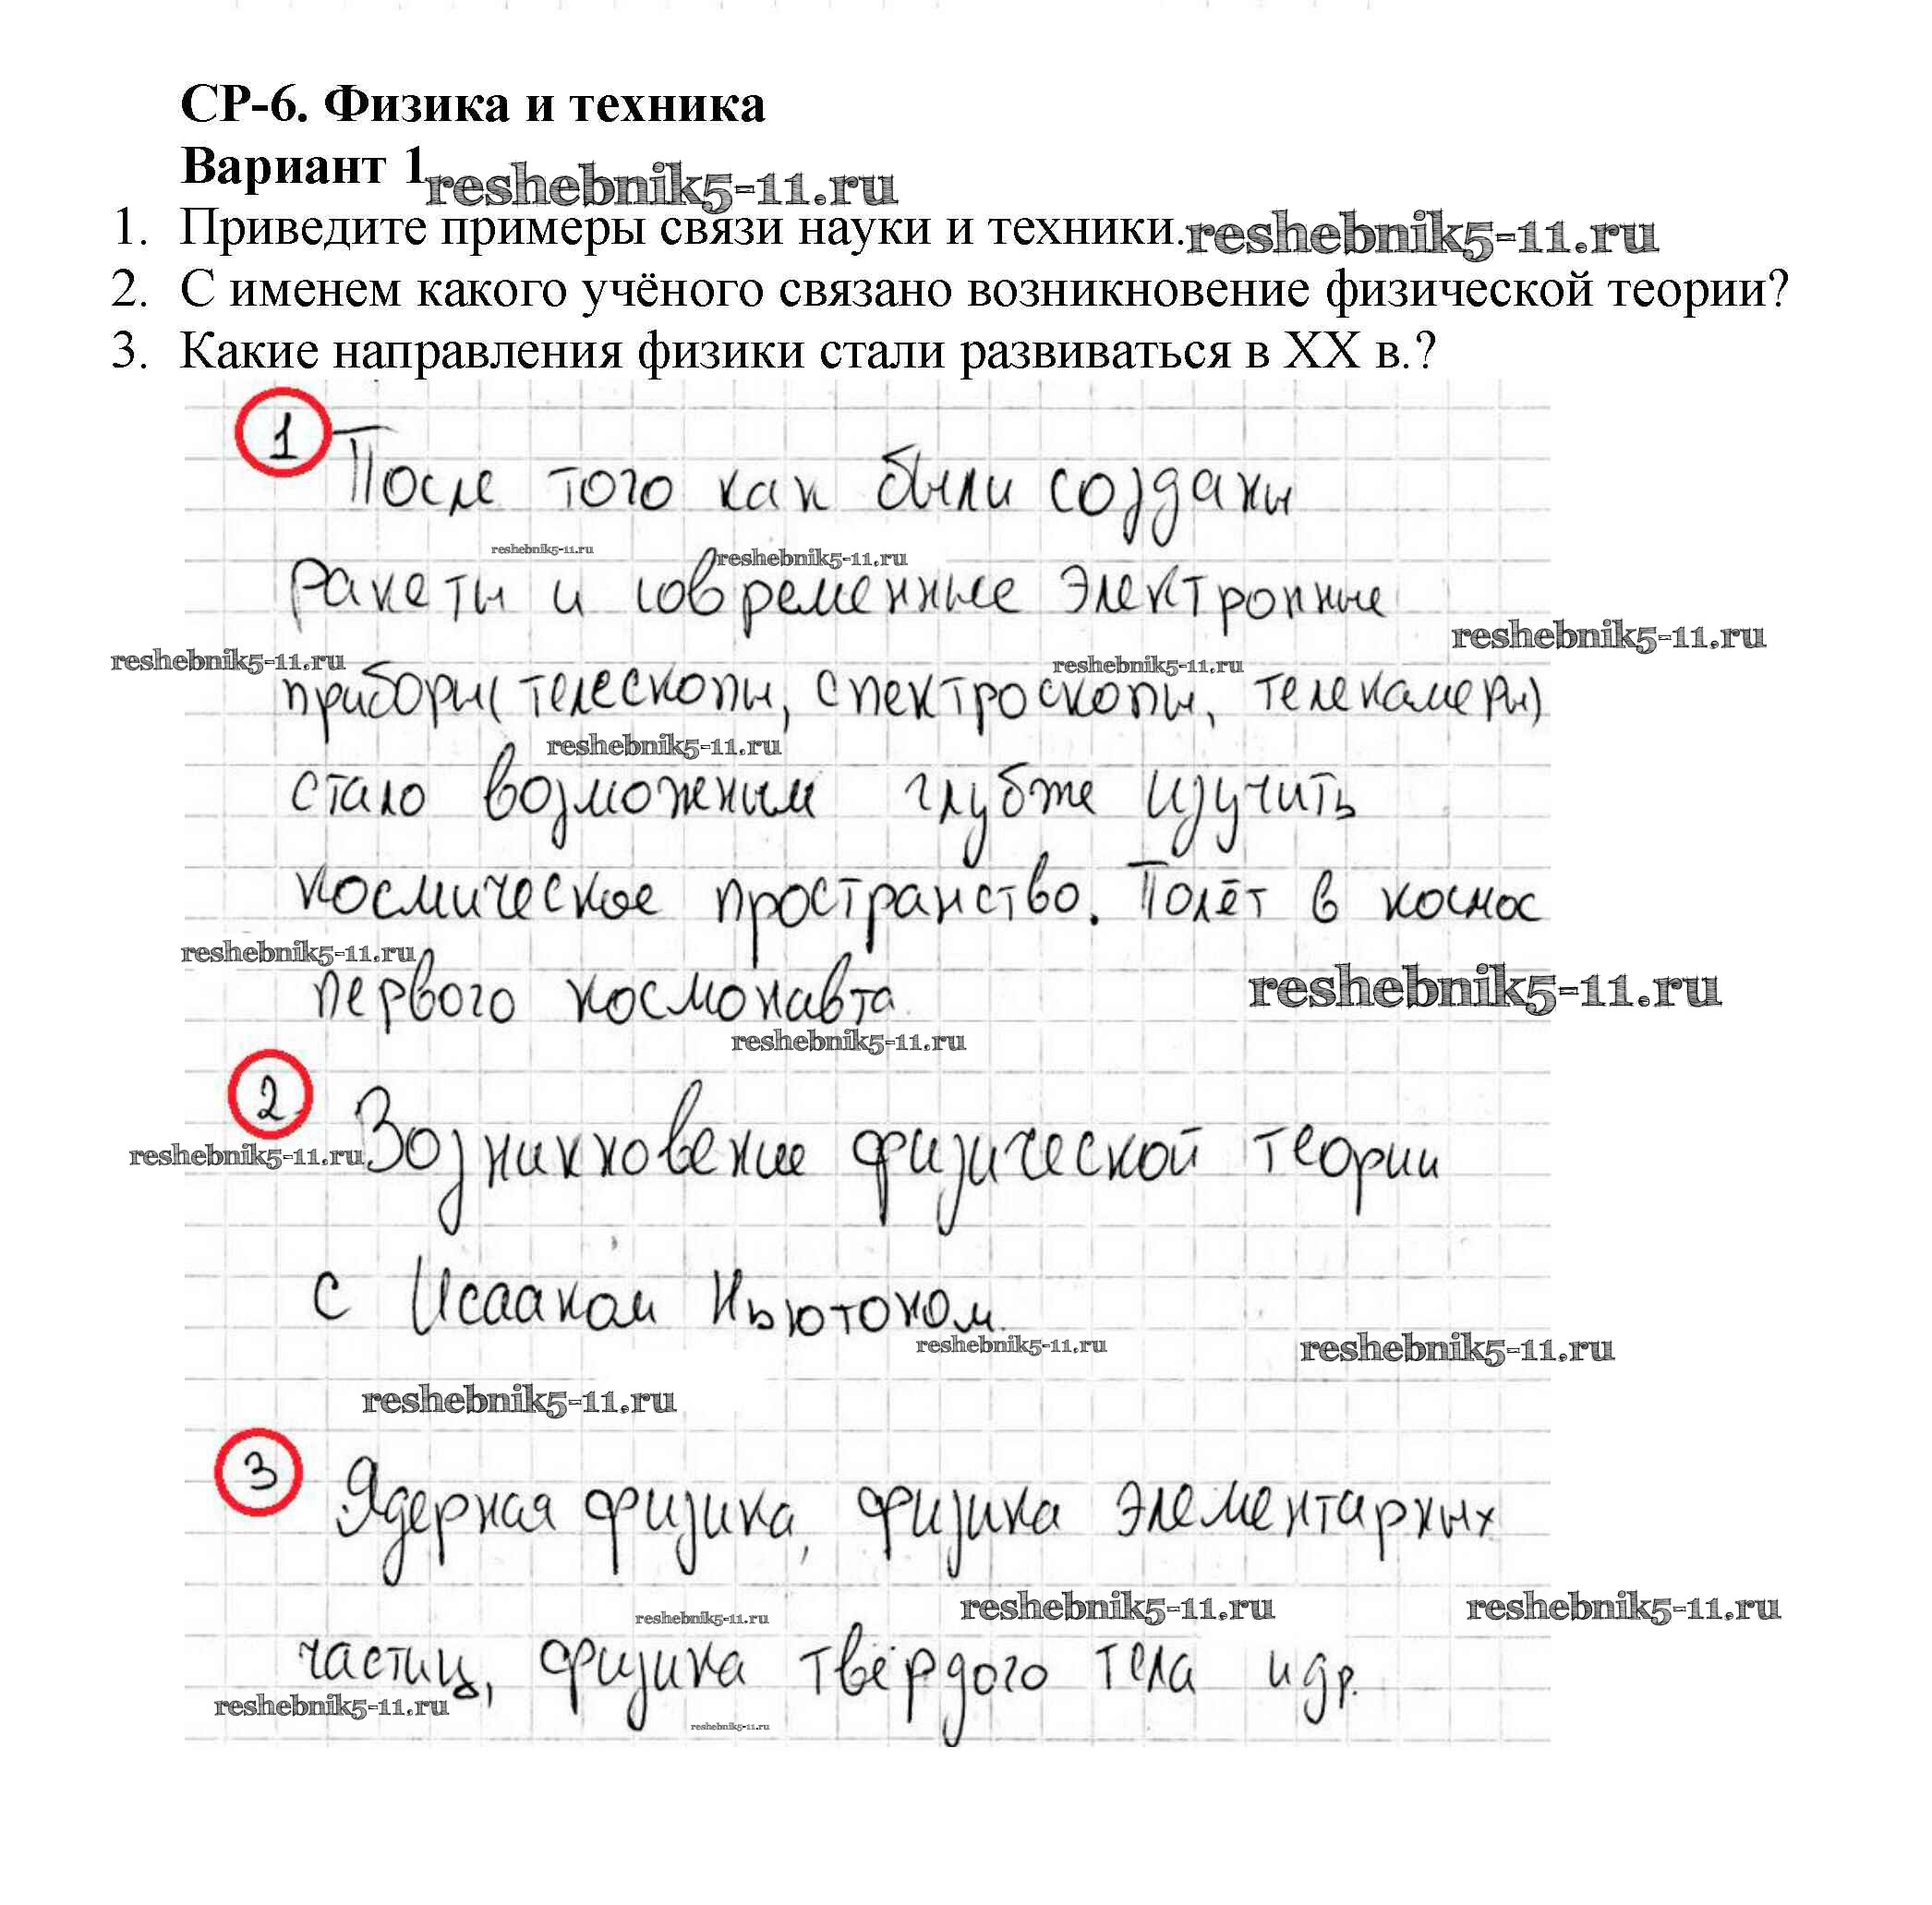 СР-6. Физика и техника
Вариант 1 reshebnik5-11.ru
1. Приведите примеры связи науки и техники. reshebnik5-11.ru
2. С именем какого учёного связано возникновение физической теории?
3. Какие направления физики стали развиваться в XX в.?
1 После того как были созданы
reshebnik5-11.ru reshebnik5-11.ru
ракеты и современные электронные
reshebnik5-11.ru
reshebnik5-11.ru reshebnik5-11.ru
приборы (телескопы, спектроскопы, телекамеры)
reshebnik5-11.ru
стало возможным глубже изучить
космическое пространство. Полёт в космос
reshebnik5-11.ru
первого космонавта. reshebnik5-11.ru
reshebnik5-11.ru
2 Возникновение физической теории
reshebnik5-11.ru
с Исааком Ньютоном.
reshebnik5-11.ru reshebnik5-11.ru
reshebnik5-11.ru
3 Ядерная физика, физика элементарных
reshebnik5-11.ru reshebnik5-11.ru reshebnik5-11.ru
частиц, физика твёрдого тела и др.
reshebnik5-11.ru
reshebnik5-11.ru